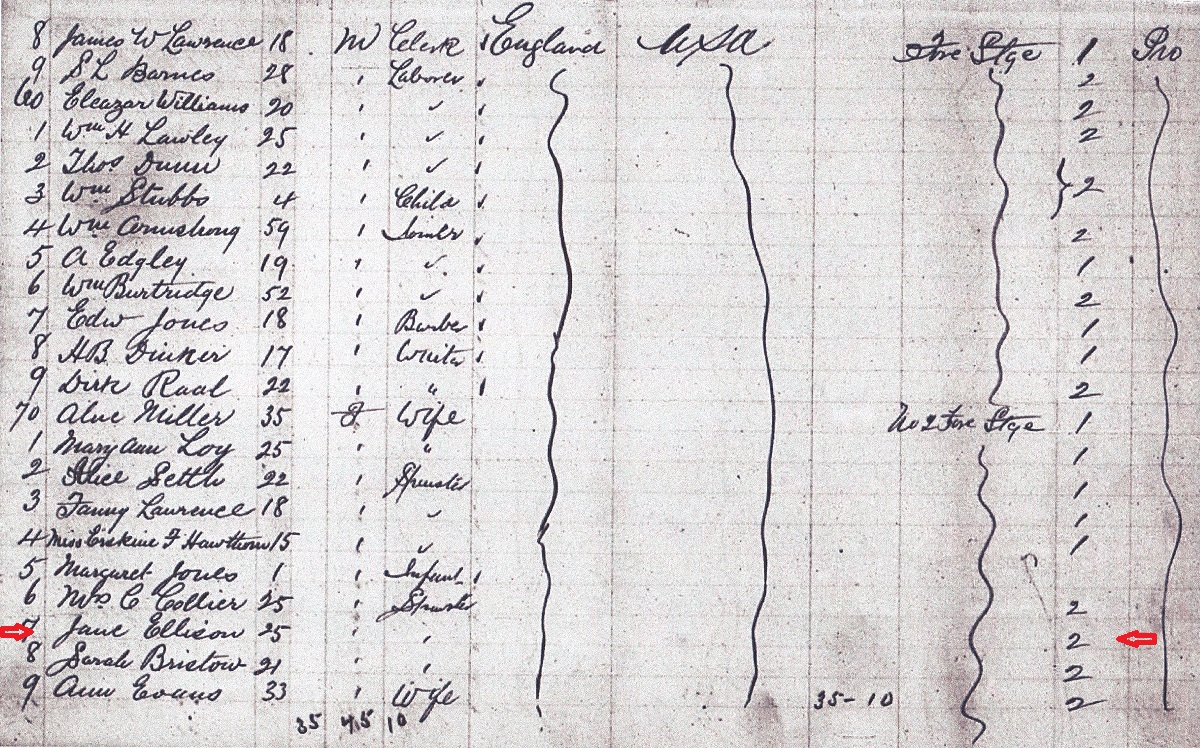 8 James W Lawrence 18 M Clerk England USA Fore Stge 1 Pro
9 S L Barnes 28 Laborer 2
60 Eleazar Williams 20 2
1 Wm H Lawley 25 2
2 Thos Dunn 22
3 Wm Stubbs 4 Child } 2
4 Wm Armstrong 59 2
5 A Edgley 19 1
6 Wm Burtridge 52 2
7 Edw Jones 18 1
8 HB Dinker 17 1
9 Dirk Raal 22 " 2
70 Miller 35 F Wife No 2 Fore Stge 1
1 Mary Ann Loy 25 " 1
2 Alice Settle 22 Spinster 1
3 Fanny Lawrence 18 1
4 Miss Erskine F Hawthorn 15 1
5 Margaret Jones 1 Infant
6 Mrs C Collier 25 Spinster 2
7 Jane Ellison 25 2
8 Sarah Bristow 21 2
9 Ann Evans 33 Wife 2
35 45 10 35-10